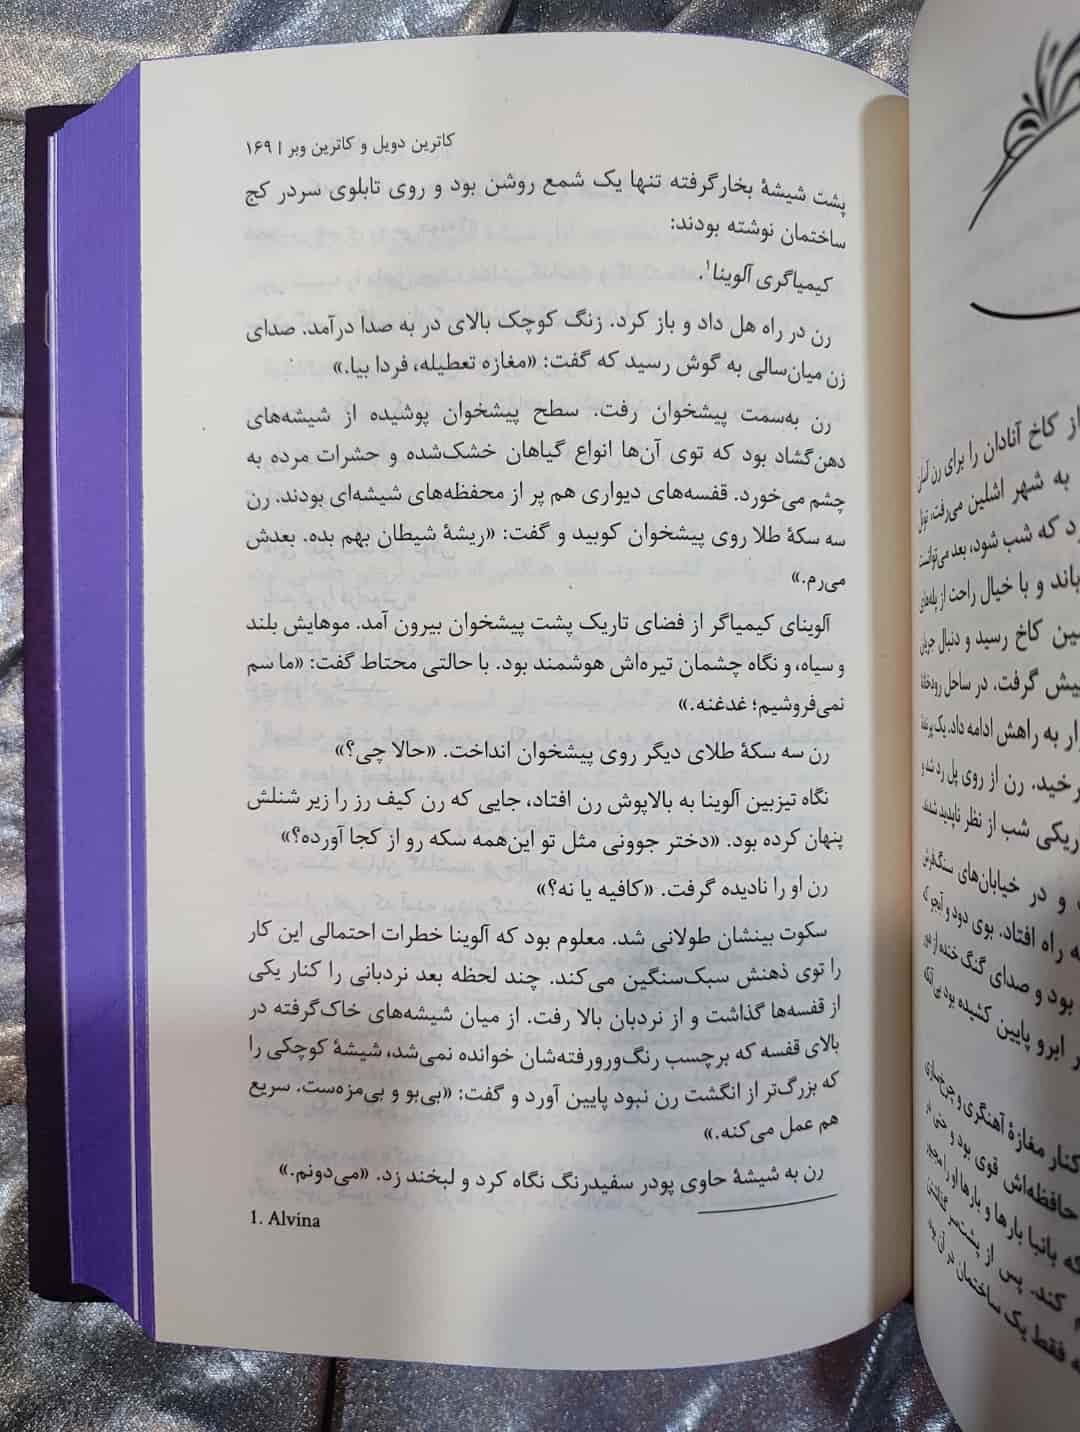 کاترین دویل و کاترین وبر | ۱۶۹
پشت شیشهٔ بخارگرفته تنها یک شمع روشن بود و روی تابلوی سردر کج
ساختمان نوشته بودند:
کیمیاگری آلوینا۱.
رن در راه هل داد و باز کرد. زنگ کوچک بالای در به صدا درآمد. صدای
زن میان‌سالی به گوش رسید که گفت: «مغازه تعطیله، فردا بیا.»
رن به‌سمت پیشخوان رفت. سطح پیشخوان پوشیده از شیشه‌های
دهن‌گشاد بود که توی آن‌ها انواع گیاهان خشک‌شده و حشرات مرده به
چشم می‌خورد. قفسه‌های دیواری هم پر از محفظه‌های شیشه‌ای بودند. رن
سه سکهٔ طلا روی پیشخوان کوبید و گفت: «ریشهٔ شیطان بهم بده. بعدش
می‌رم.»
آلوینای کیمیاگر از فضای تاریک پشت پیشخوان بیرون آمد. موهایش بلند
و سیاه، و نگاه چشمان تیره‌اش هوشمند بود. با حالتی محتاط گفت: «ما سم
نمی‌فروشیم؛ غدغنه.»
رن سه سکهٔ طلای دیگر روی پیشخوان انداخت. «حالا چی؟»
نگاه تیزبین آلوینا به بالاپوش رن افتاد، جایی که رن کیف رز را زیر شنلش
پنهان کرده بود. «دختر جوونی مثل تو این‌همه سکه رو از کجا آورده؟»
رن او را نادیده گرفت. «کافیه یا نه؟»
سکوت بینشان طولانی شد. معلوم بود که آلوینا خطرات احتمالی این کار
را توی ذهنش سبک‌سنگین می‌کند. چند لحظه بعد نردبانی را کنار یکی
از قفسه‌ها گذاشت و از نردبان بالا رفت. از میان شیشه‌های خاک‌گرفته در
بالای قفسه که برچسب رنگ‌ورورفته‌شان خوانده نمی‌شد، شیشهٔ کوچکی را
که بزرگ‌تر از انگشت رن نبود پایین آورد و گفت: «بی‌بو و بی‌مزه‌ست. سریع
هم عمل می‌کنه.»
رن به شیشهٔ حاوی پودر سفیدرنگ نگاه کرد و لبخند زد. «می‌دونم.»
1. Alvina
از کاخ آنادان را برای رن آسان
به شهر اشلین می‌رفت، تونل
که شب شود، بعد می‌توانست
و با خیال راحت از پله‌های
کاخ رسید و دنبال جریان
پیش گرفت. در ساحل رودخانهٔ
به راهش ادامه داد. یک پرندهٔ
رن از روی پل رد شد و
شب از نظر ناپدید شدند.
و در خیابان‌های سنگ‌فرش
راه افتاد. بوی دود و آبجو که
بود و صدای گنگ خنده از دور
ابرو پایین کشیده بود بی‌آنکه
کنار مغازهٔ آهنگری و چرخ‌سازی
حافظه‌اش قوی بود و حتی در
که بانبا بارها و بارها او را مجبور
کند. پس از پشت‌سر گذاشتن
فقط یک ساختمان در آن بود